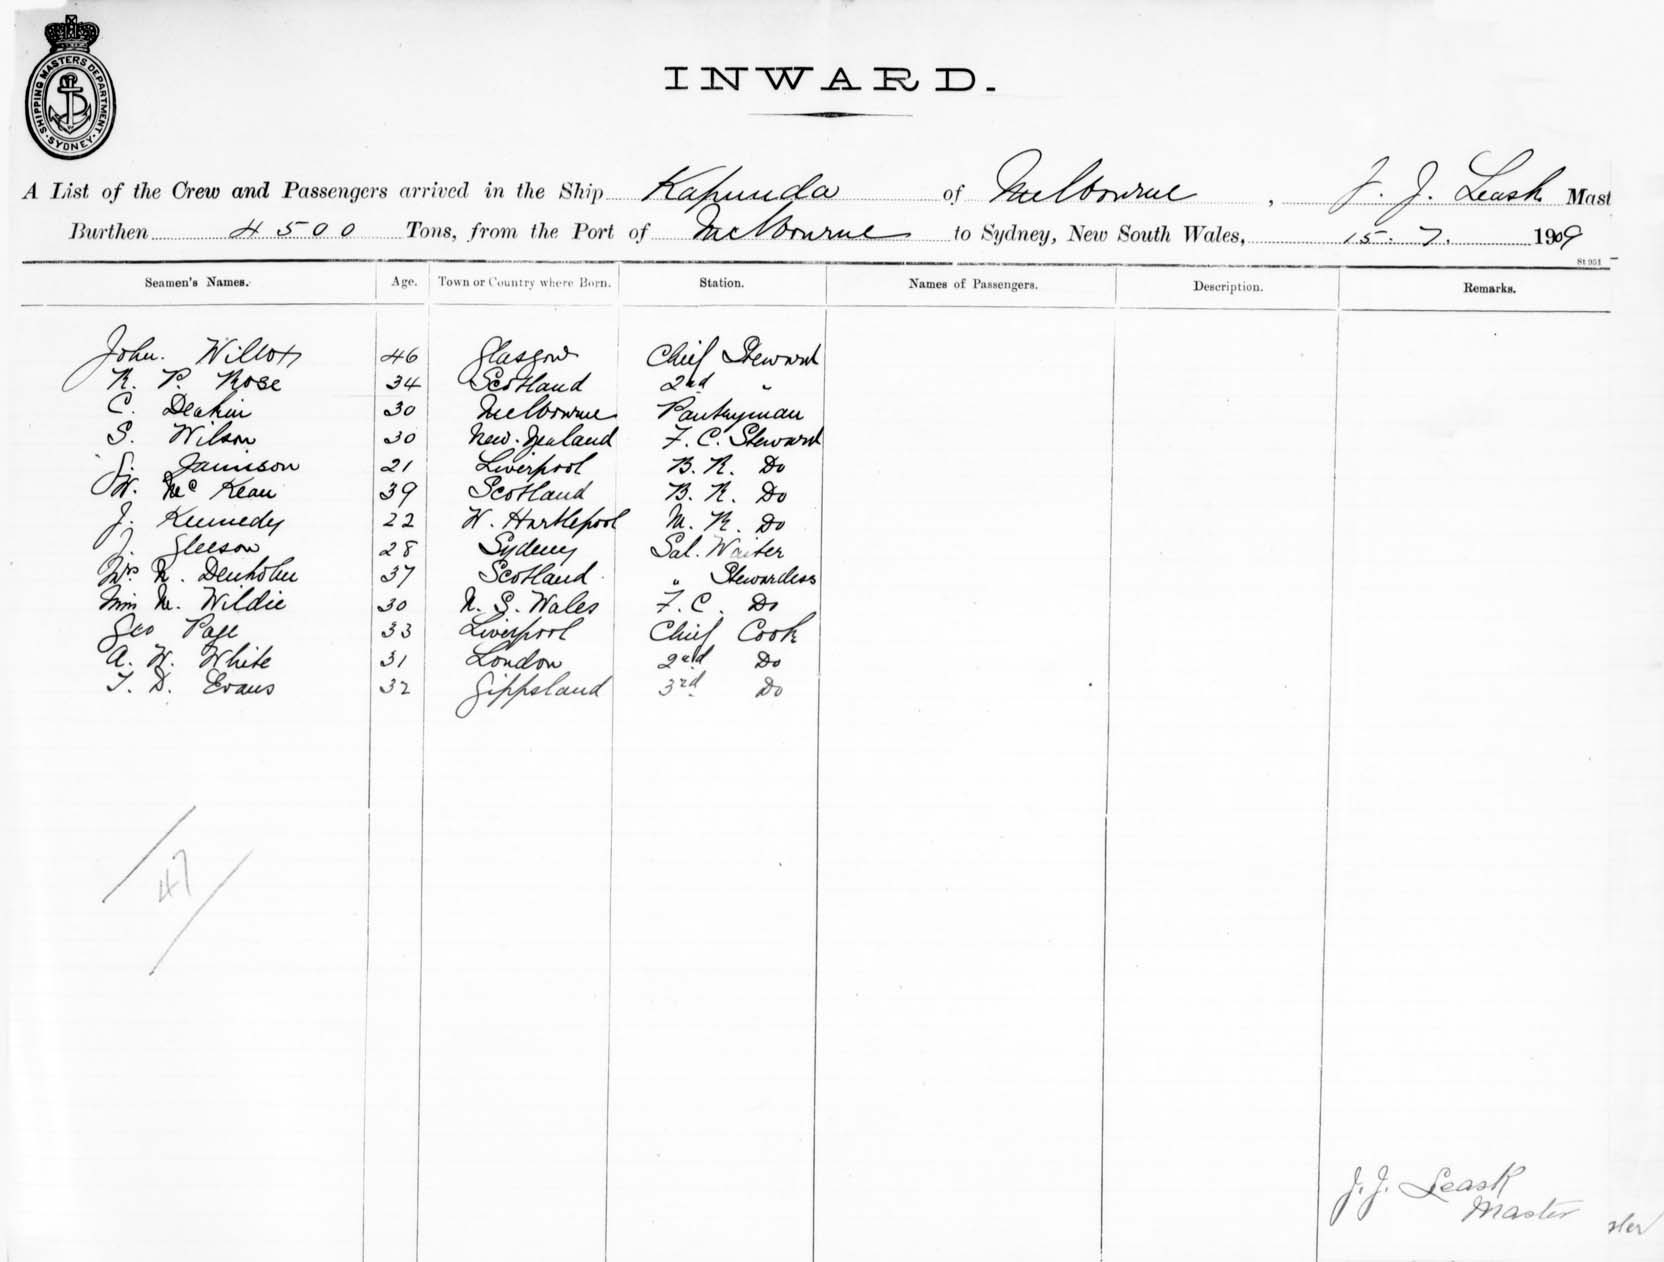 SHIPPING MASTERS DEPARTMENT. SYDNEY
INWARD.
A List of the Crew and Passengers arrived in the Ship Kapunda of Melbourne, J. J. Leask Mast
Burthen 4500 Tons, from the Port of Melbourne to Sydney, New South Wales, 15. 7. 1909
St 951
Seamen's Names. Age. Town or Country where Born. Station. Names of Passengers. Description. Remarks.
John. Willox 46 Glasgow Chief Steward
R. P. Rose 34 Scotland 2nd "
C. Deakin 30 Melbourne Pantryman
S. Wilson 30 New. Zealand F. C. Steward
G. Jamison 21 Liverpool B. R. Do
W. Mc Kean 39 Scotland B. R. Do
J. Kennedy 22 W. Hartlepool M. R. Do
J. Gleeson 28 Sydney Sal. Waiter
Mrs N. Denholm 37 Scotland " Stewardess
Miss M. Wildie 30 N. S. Wales F. C. Do
Geo Page 33 Liverpool Chief Cook
A. W. White 31 London 2nd Do
T. D. Evans 32 Gippsland 3rd Do
47
J. J. Leask
Master
ster